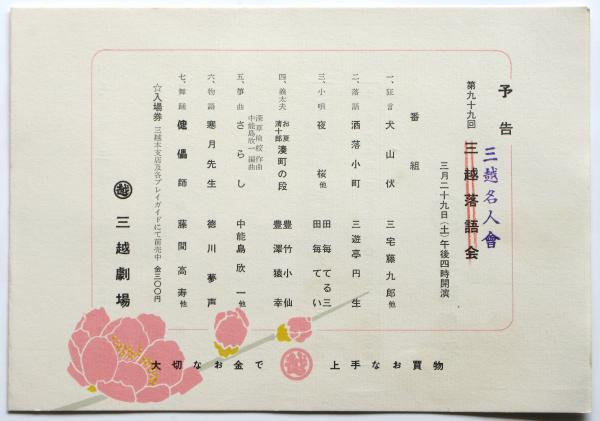 予告
第九十九回 三越落語会
三越名人會
三月二十九日(土)午後四時開演
番組
一、狂言 犬山伏 三宅藤九郎他
二、落語 洒落小町 三遊亭円生
三、小唄 夜桜他 田毎てる三
田毎てい
四、義太夫 お夏清十郎 湊町の段 豊竹小仙
豊澤猿幸
五、箏曲 深草検校作曲 中能島欣一編曲 さらし 中能島欣一他
六、物語 寒月先生 徳川夢声
七、舞踊 傀儡師 藤間高寿他
☆入場券 三越本支店及各プレイガイドにて前売中 金三〇〇円
越 三越劇場
大切なお金で 越 上手なお買物